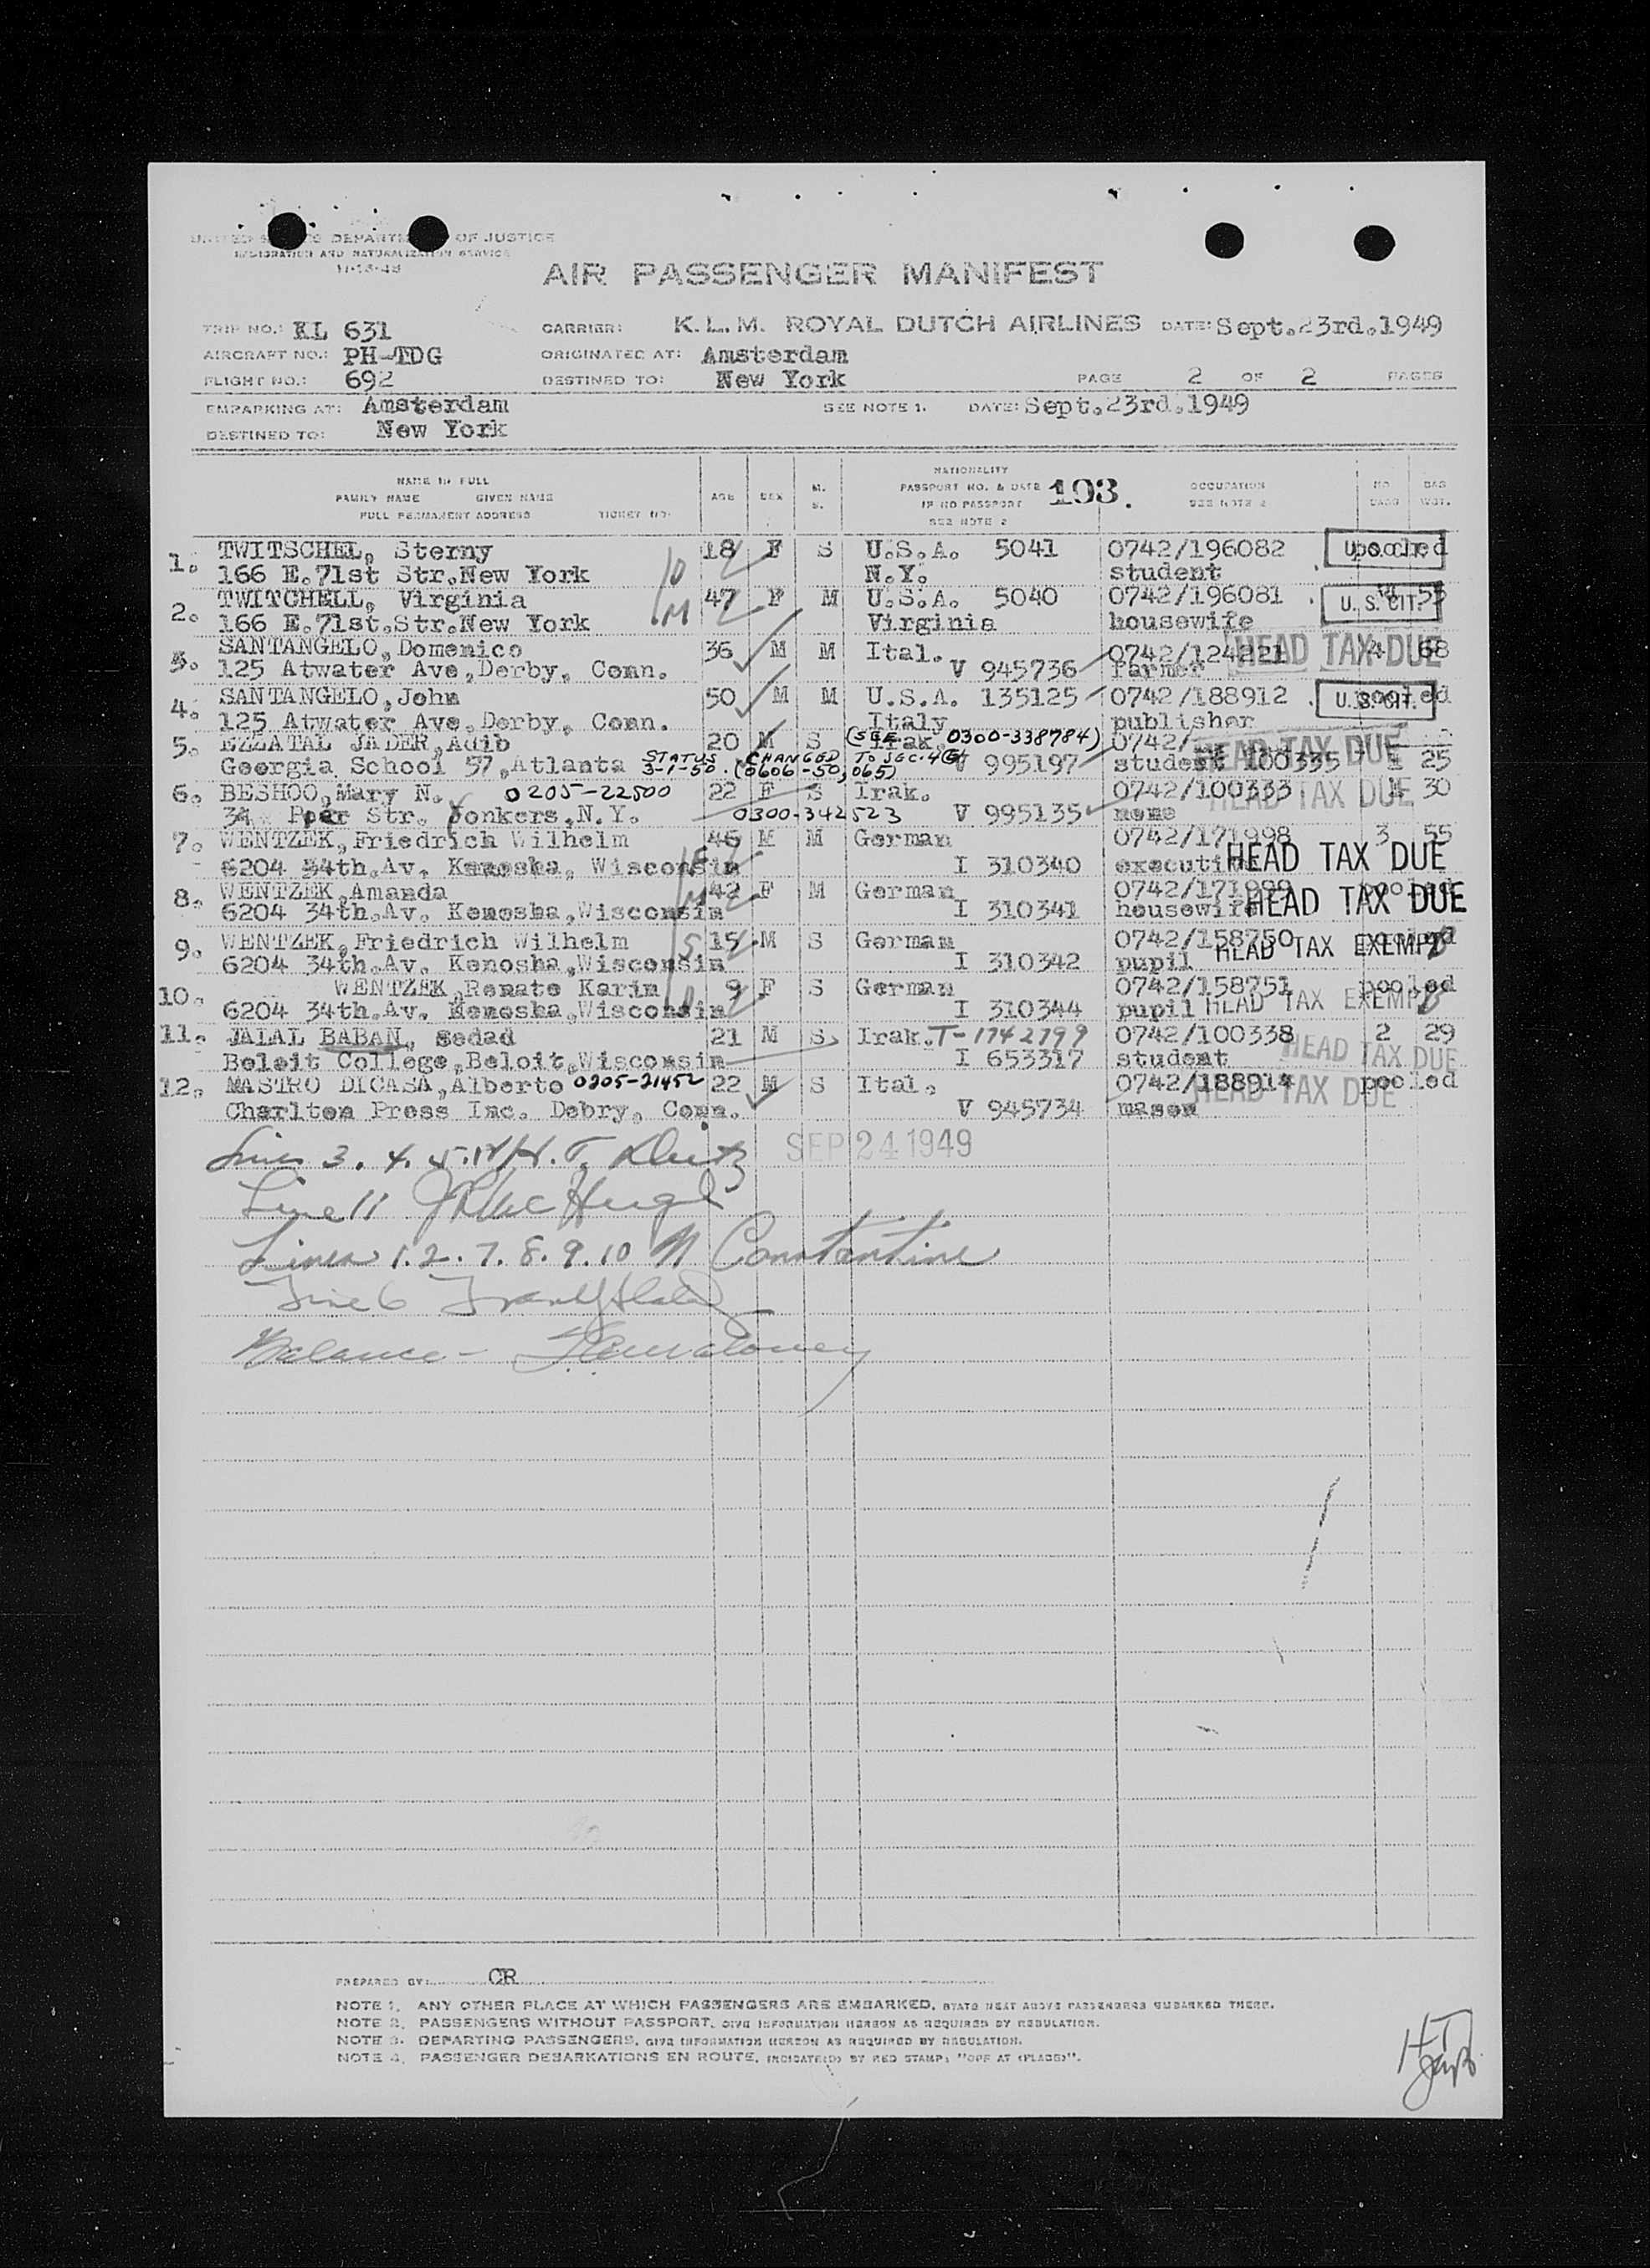 UNITED STATES DEPARTMENT OF JUSTICE
IMMIGRATION AND NATURALIZATION SERVICE
11-15-48
AIR PASSENGER MANIFEST
TRIP NO.: KL 631 CARRIER: K.L.M. ROYAL DUTCH AIRLINES DATE: Sept.23rd.1949
AIRCRAFT NO.: PH-TDG ORIGINATED AT: Amsterdam
FLIGHT NO.: 692 DESTINED TO: New York PAGE 2 OF 2 PAGES
EMBARKING AT: Amsterdam SEE NOTE 1. DATE: Sept.23rd.1949
DESTINED TO: New York
NAME IN FULL
FAMILY NAME GIVEN NAME
FULL PERMANENT ADDRESS TICKET NO.
AGE SEX M. S.
NATIONALITY
PASSPORT NO. & DATE 193.
IF NO PASSPORT
SEE NOTE 2
OCCUPATION
SEE NOTE 2
NO BAGG BAG WGT.
1. TWITSCHEL, Sterny 18 F S U.S.A. 5041 0742/196082 pooled
166 E.71st Str.New York N.Y. student
2. TWITCHELL, Virginia 47 F M U.S.A. 5040 0742/196081 U. S. CIT. 55
166 E.71st.Str.New York Virginia housewife
3. SANTANGELO,Domenico 36 M M Ital. 0742/124221 HEAD TAX DUE 68
125 Atwater Ave,Derby, Conn. V 945736 farmer
4. SANTANGELO,John 50 M M U.S.A. 135125 0742/188912 U.S. CIT. pooled
125 Atwater Ave,Derby, Conn. Italy publisher
5. EZZATAL JADER,Adib 20 M S Irak. (SEE 0300-338784) 0742/ HEAD TAX DUE
Georgia School 57,Atlanta STATUS CHANGED TO SEC.4(e) 3-1-50. (0606-50,065) V 995197 student 100335 1 25
6. BESHOO,Mary N. 0205-22500 22 F S Irak. 0742/100333 HEAD TAX DUE 1 30
34 Str. Yonkers,N.Y. 0300-342523 V 995135 none
7. WENTZEK,Friedrich Wilhelm 46 M M German 0742/171998 3 55
6204 34th.Av. Kenosha, Wisconsin I 310340 HEAD TAX DUE
8. WENTZEK,Amanda 42 F M German 0742/171999 pooled
6204 34th.Av. Kenosha,Wisconsin I 310341 housewife HEAD TAX DUE
9. WENTZEK,Friedrich Wilhelm 15 M S German 0742/158750 pooled
6204 34th.Av. Kenosha,Wisconsin I 310342 pupil HEAD TAX EXEMPT
10. WENTZEK,Renate Karin 9 F S German 0742/158751 pooled
6204 34th.Av. Kenosha,Wisconsin I 310344 pupil HEAD TAX EXEMPT
11. JALAL BABAN, Sedad 21 M S Irak. T-1742799 0742/100338 2 29
Beloit College,Beloit,Wisconsin I 653317 student HEAD TAX DUE
12. MASTRO DICASA,Alberto 0205-21452 22 M S Ital. 0742/188914 pooled
Charlton Press Inc. Debry, Conn. V 945734 mason HEAD TAX DUE
Lines 3. 4. 5. 12 SEP 24 1949
Line 11
Lines 1.2.7.8.9.10 N Constantine
Line 6
Balance -
PREPARED BY: CR
NOTE 1. ANY OTHER PLACE AT WHICH PASSENGERS ARE EMBARKED, STATE NEXT ABOVE PASSENGERS EMBARKED THERE.
NOTE 2. PASSENGERS WITHOUT PASSPORT, GIVE INFORMATION HEREON AS REQUIRED BY REGULATION.
NOTE 3. DEPARTING PASSENGERS, GIVE INFORMATION HEREON AS REQUIRED BY REGULATION.
NOTE 4. PASSENGER DEBARKATIONS EN ROUTE, INDICATE(D) BY RED STAMP: "OFF AT (PLACE)".